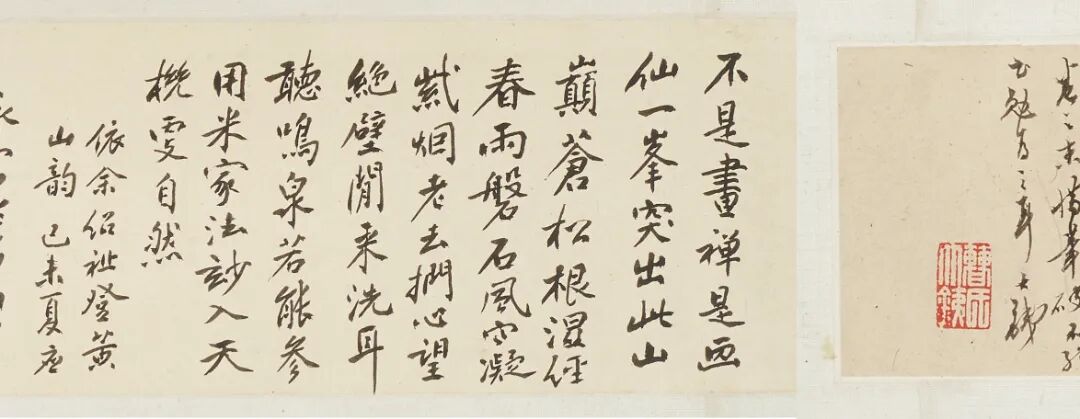 書勉為之耳 大鐵
不是畫禅是画
仙一峯突出此山
巔蒼松根濕經
春雨磐石風凝
紫烟老去捫心望
絕壁閒來洗耳
聽鳴泉若能參
用米家法妙入天
機更自然
依余紹祉登黃
山韵 己未夏应